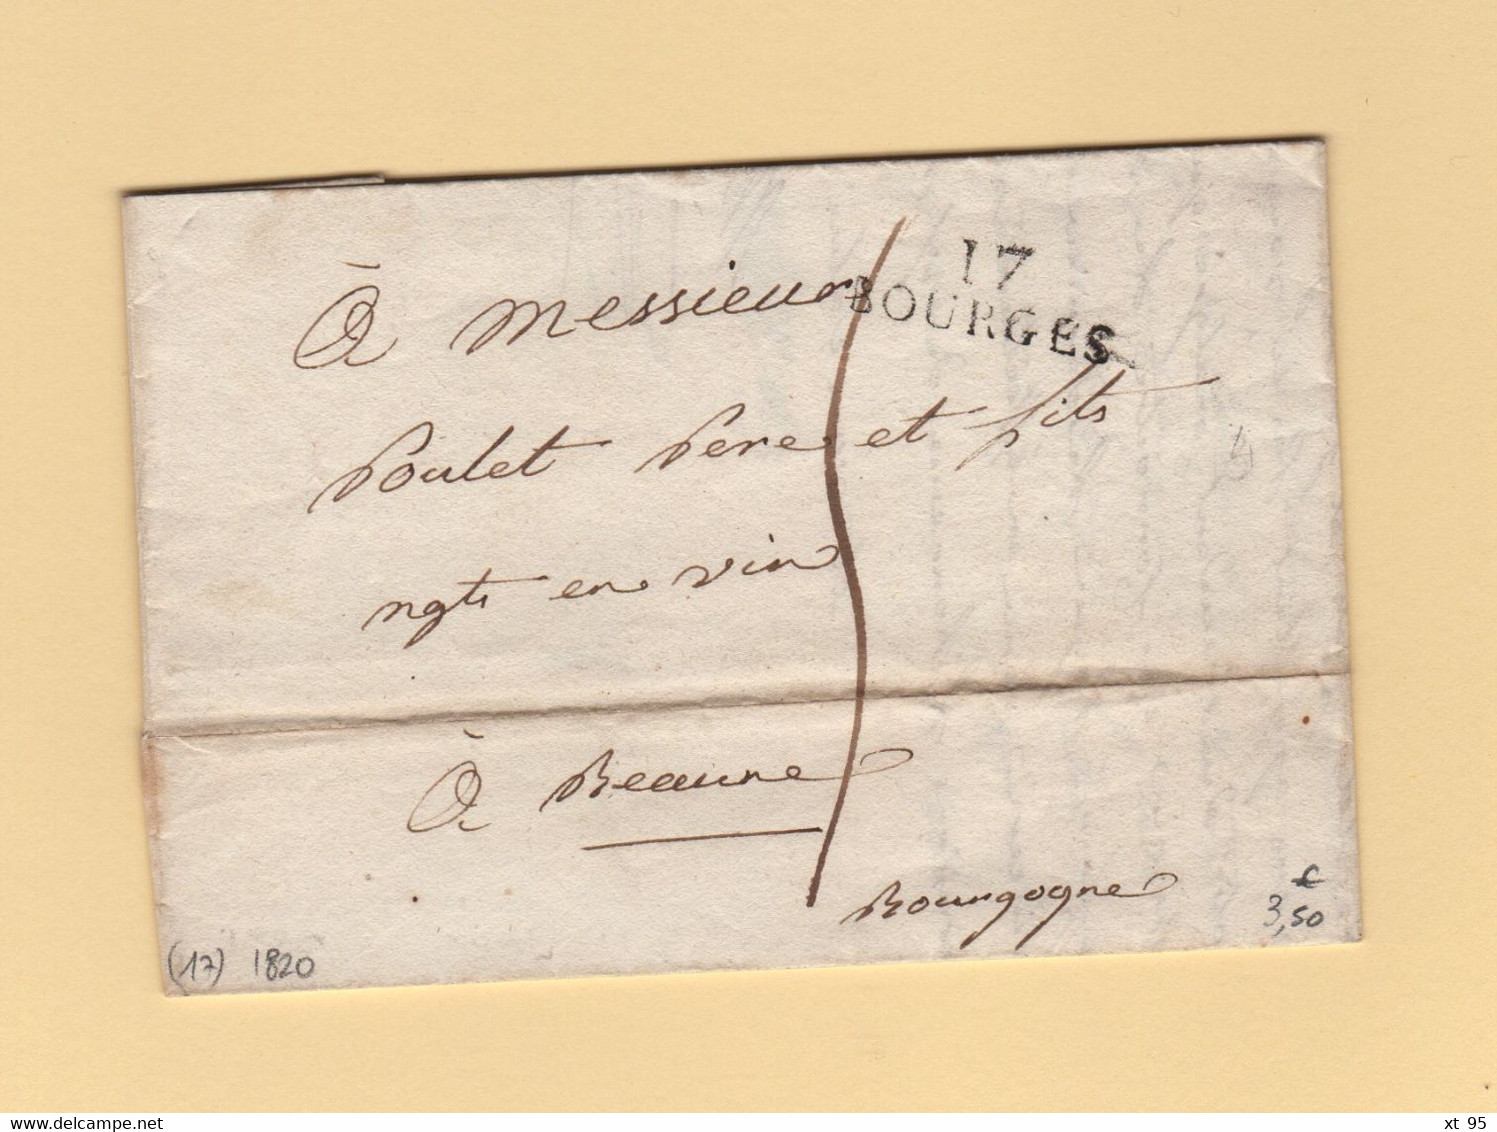 17
BOURGES
à Messieurs
Poulet Pere et fils
ngts en vin
à Beaune
Bourgogne
(17) 1820
€
3,50
delcampe.net
xt 95